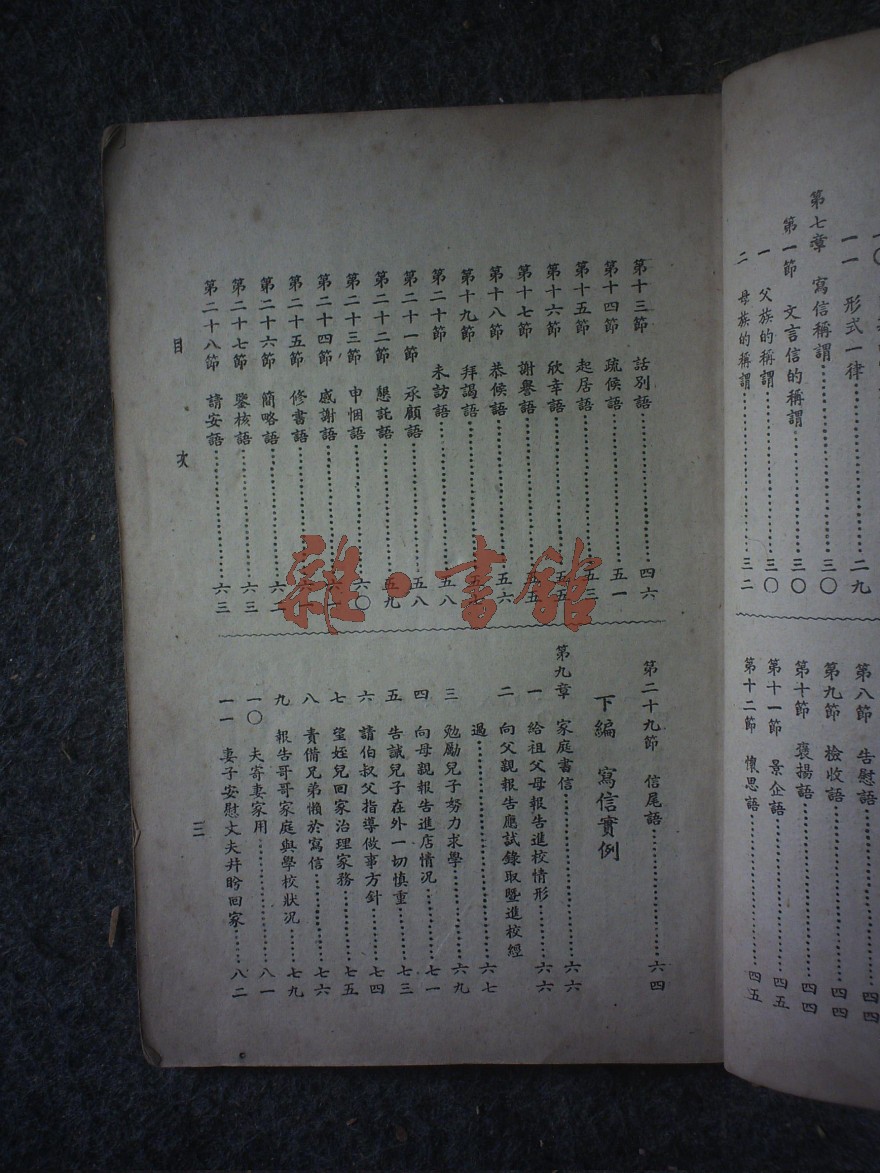 一一 形式一律……二九
第七章 寫信稱謂……三〇
第一節 文言信的稱謂……三〇
一 父族的稱謂……三〇
二 母族的稱謂……三二
第八節 告慰語……四四
第九節 檢收語……四四
第十節 褒揚語……四四
第十一節 景企語……四五
第十二節 懷思語……四五
第十三節 話別語……四六
第十四節 疏候語……五一
第十五節 起居語……五三
第十六節 欣幸語……五五
第十七節 謝譽語……五五
第十八節 恭候語……五六
第十九節 拜謁語……
第二十節 未訪語……五八
第二十一節 承顧語……五八
第二十二節 懇託語……五九
第二十三節 申悃語……六〇
第二十四節 感謝語……
第二十五節 修書語……
第二十六節 簡略語……六二
第二十七節 鑒核語……六三
第二十八節 請安語……六三
目次
第二十九節 信尾語……六四
下編 寫信實例
第九章 家庭書信……六六
一 給祖父母報告進校情形……六六
二 向父親報告應試錄取暨進校經
過……六七
三 勉勵兒子努力求學……六九
四 向母親報告進店情況……七一
五 告誡兒子在外一切慎重……七三
六 請伯叔父指導做事方針……七四
七 望姪兒回家治理家務……七五
八 責備兄弟懶於寫信……七六
九 報告哥哥家庭與學校狀況……七九
一〇 夫寄妻家用……八一
一一 妻子安慰丈夫并盼回家……八二
三
雜·書館